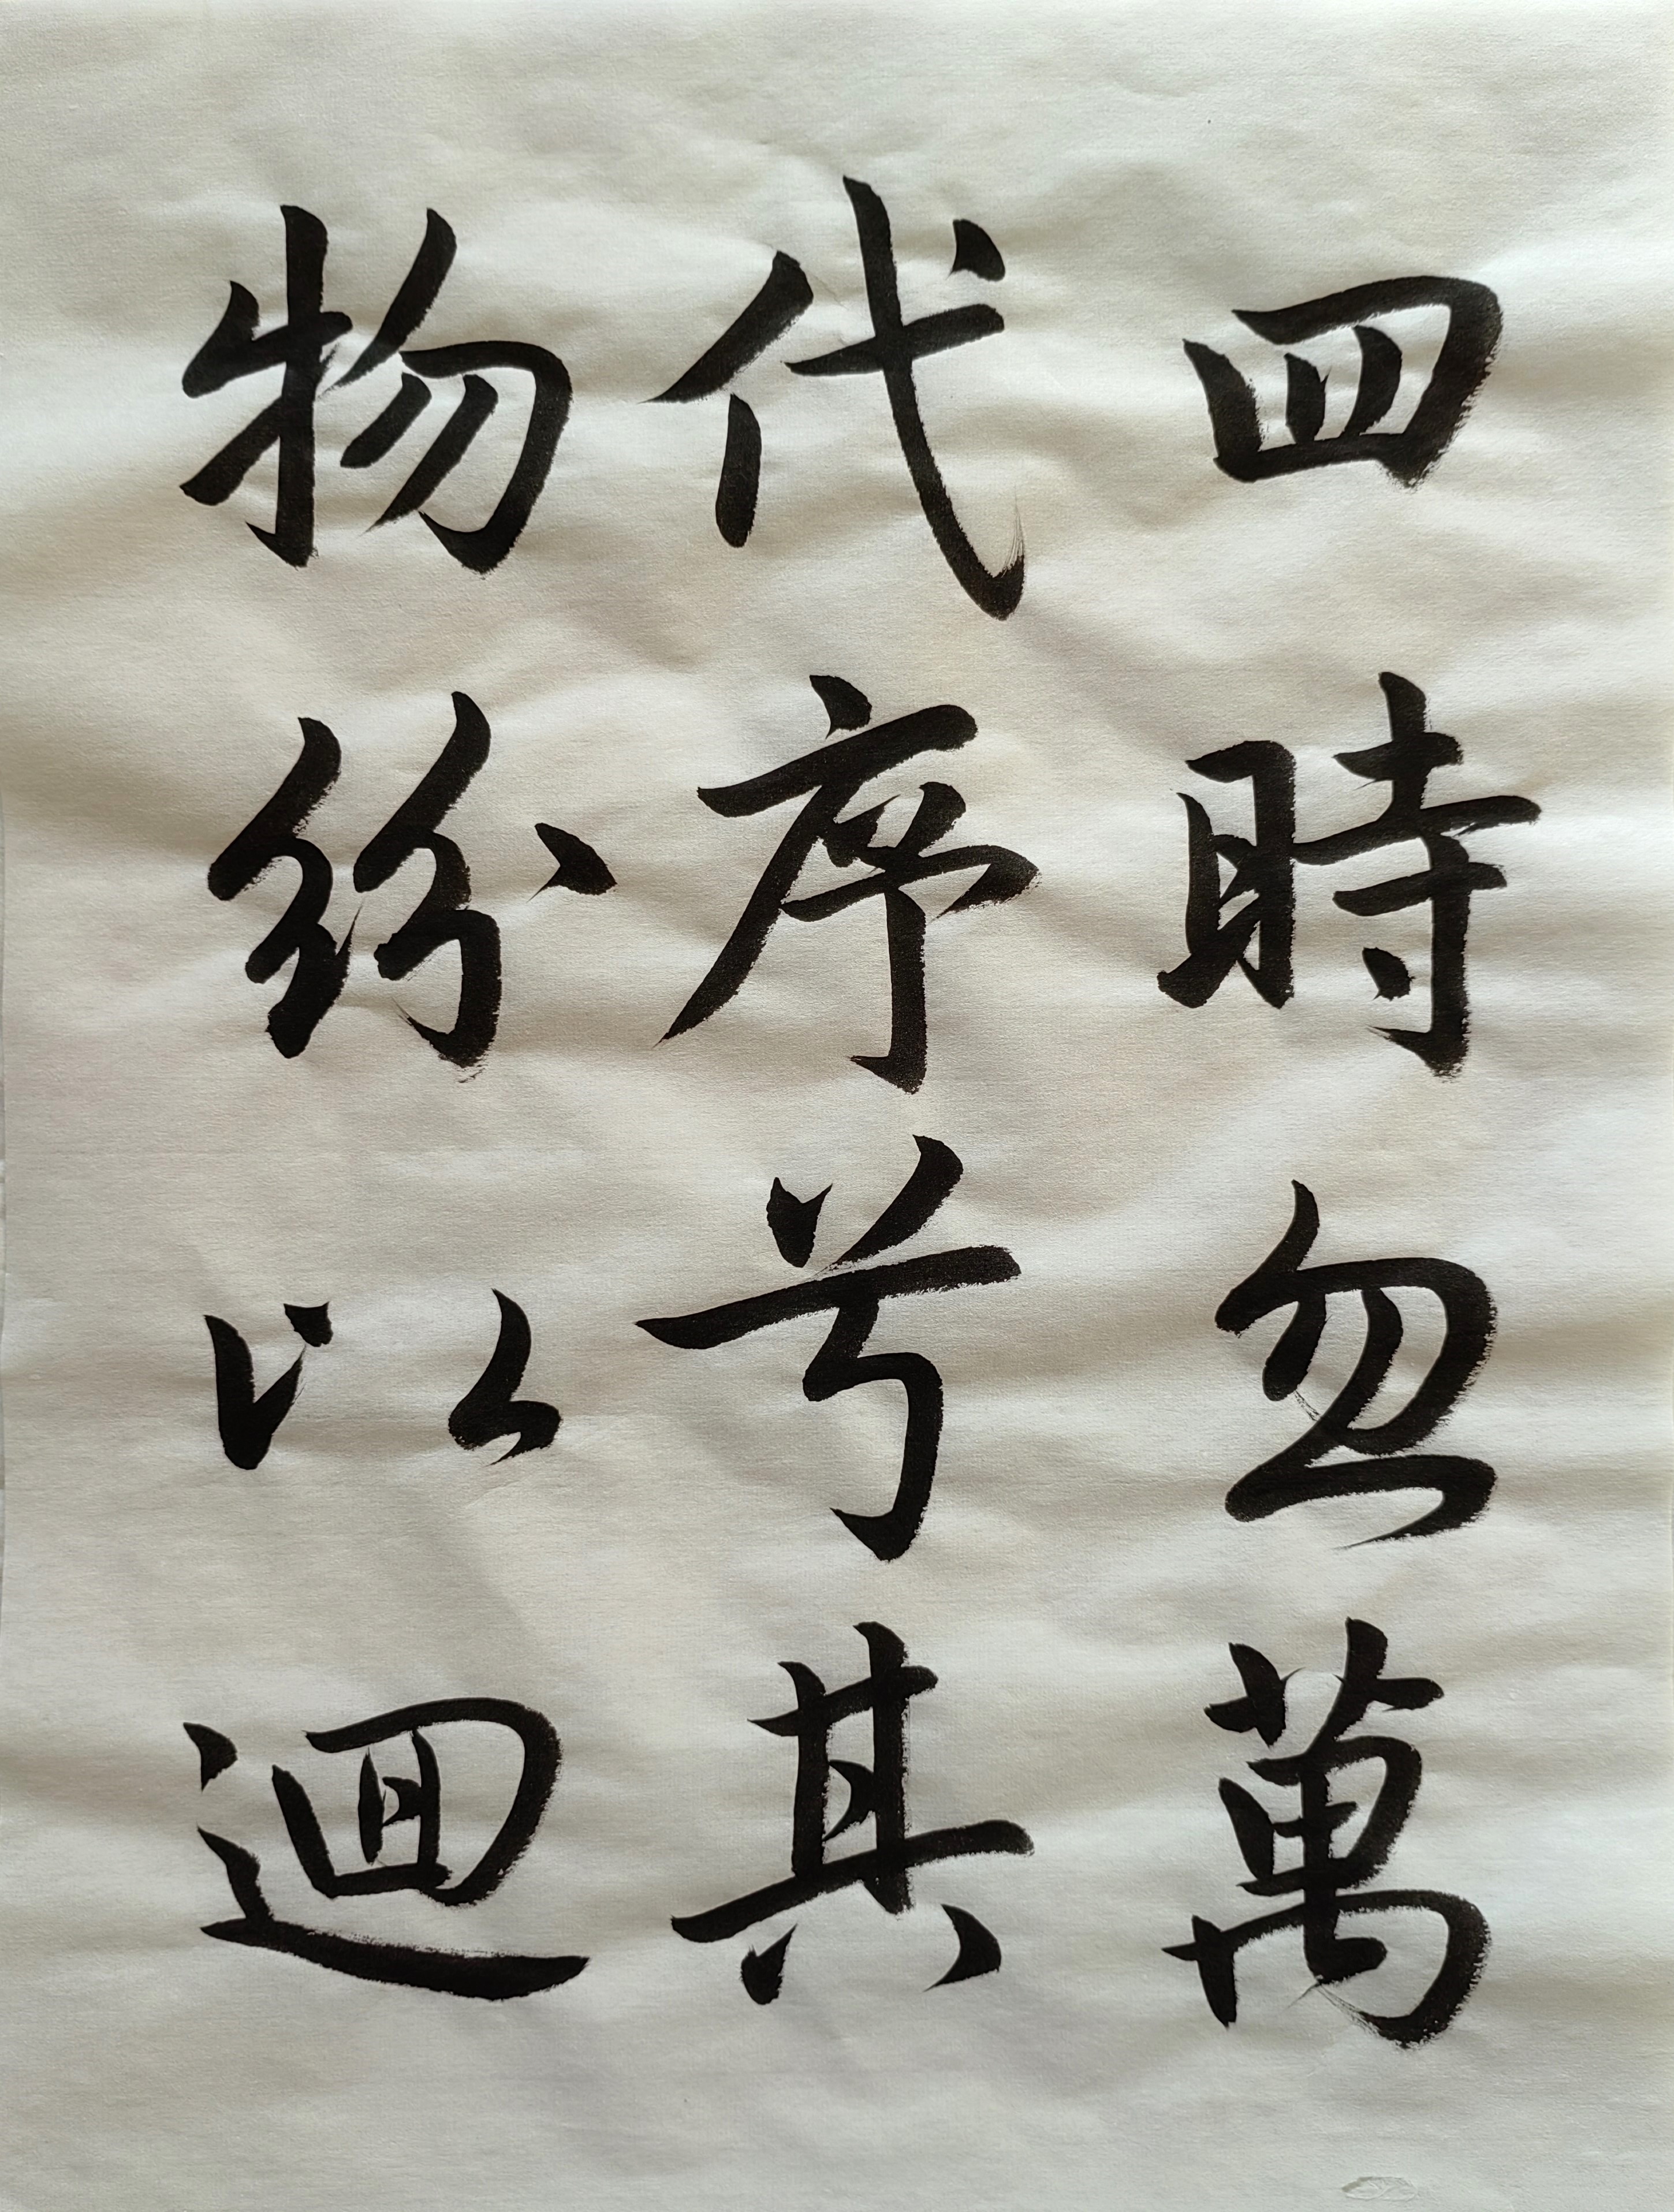 四時忽萬
代序兮其
物紛以迴